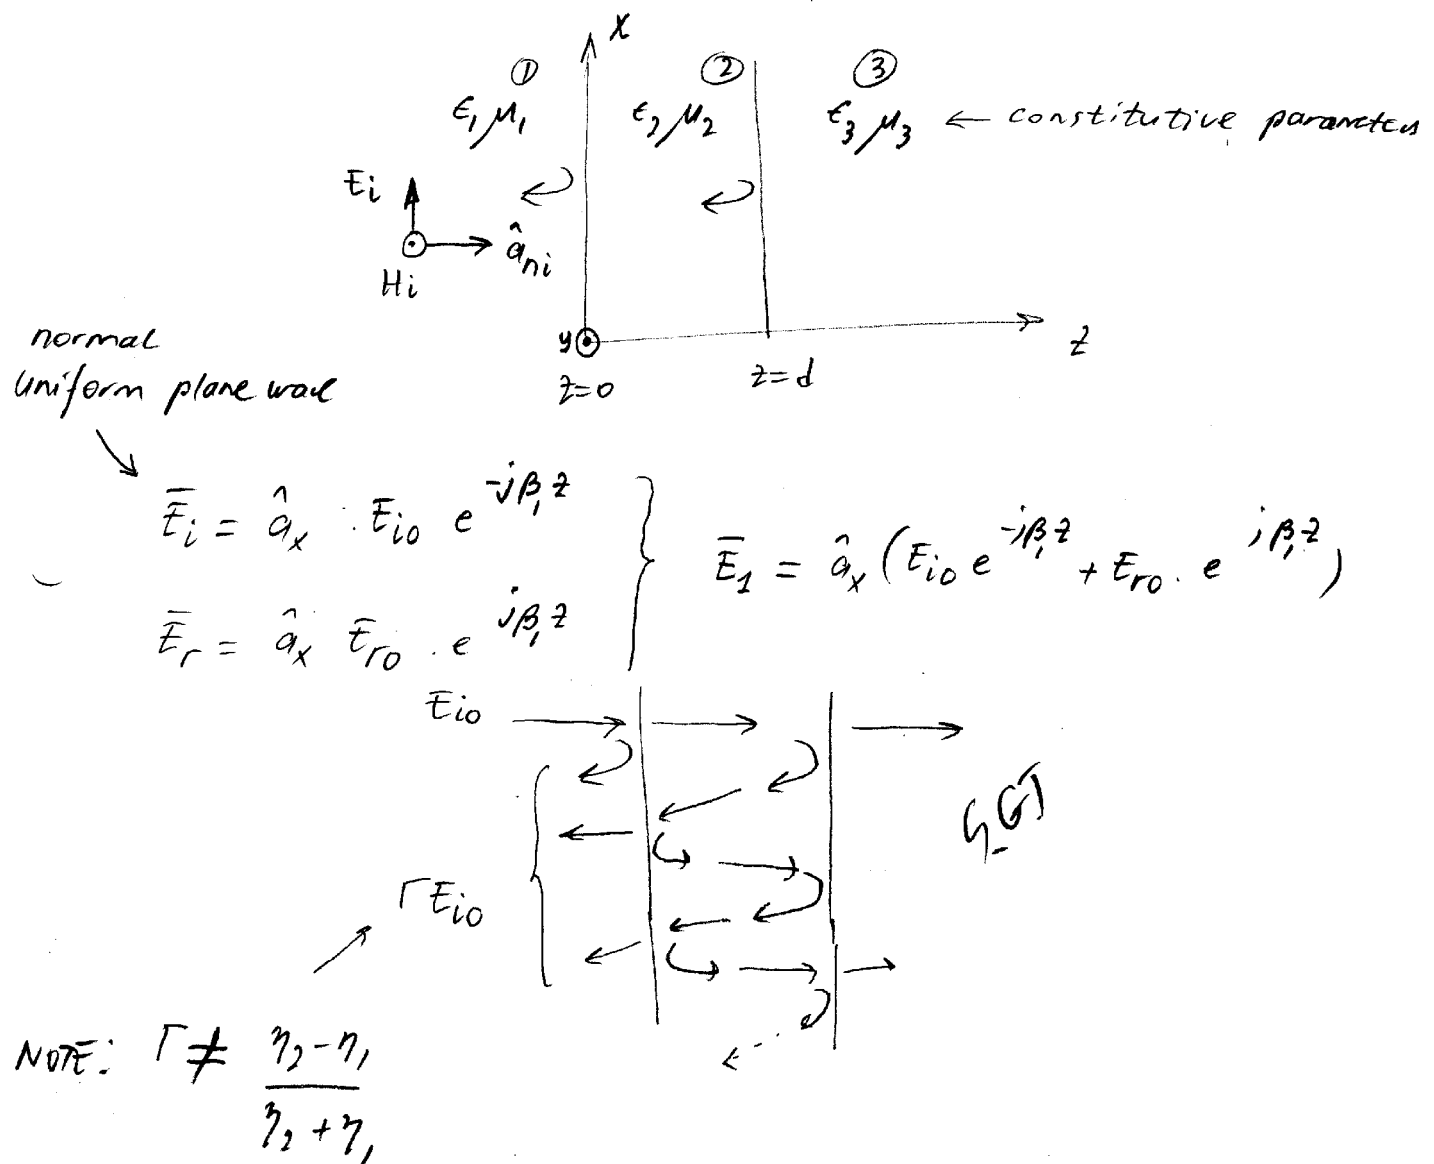 X
① ② ③
ϵ₁μ₁ ϵ₂μ₂ ϵ₃μ₃ ← constitutive parameters
Ei
â_ni
Hi
y
z
z=0 z=d
normal
uniform plane wave
Ēi = âx · Eio e^(-jβ₁z)
Ēr = âx Ero · e^(jβ₁z)
Ē₁ = âx (Eio e^(-jβ₁z) + Ero · e^(jβ₁z))
Eio
ΓEio
NOTE: Γ ≠ (η₂-η₁)/(η₂+η₁)